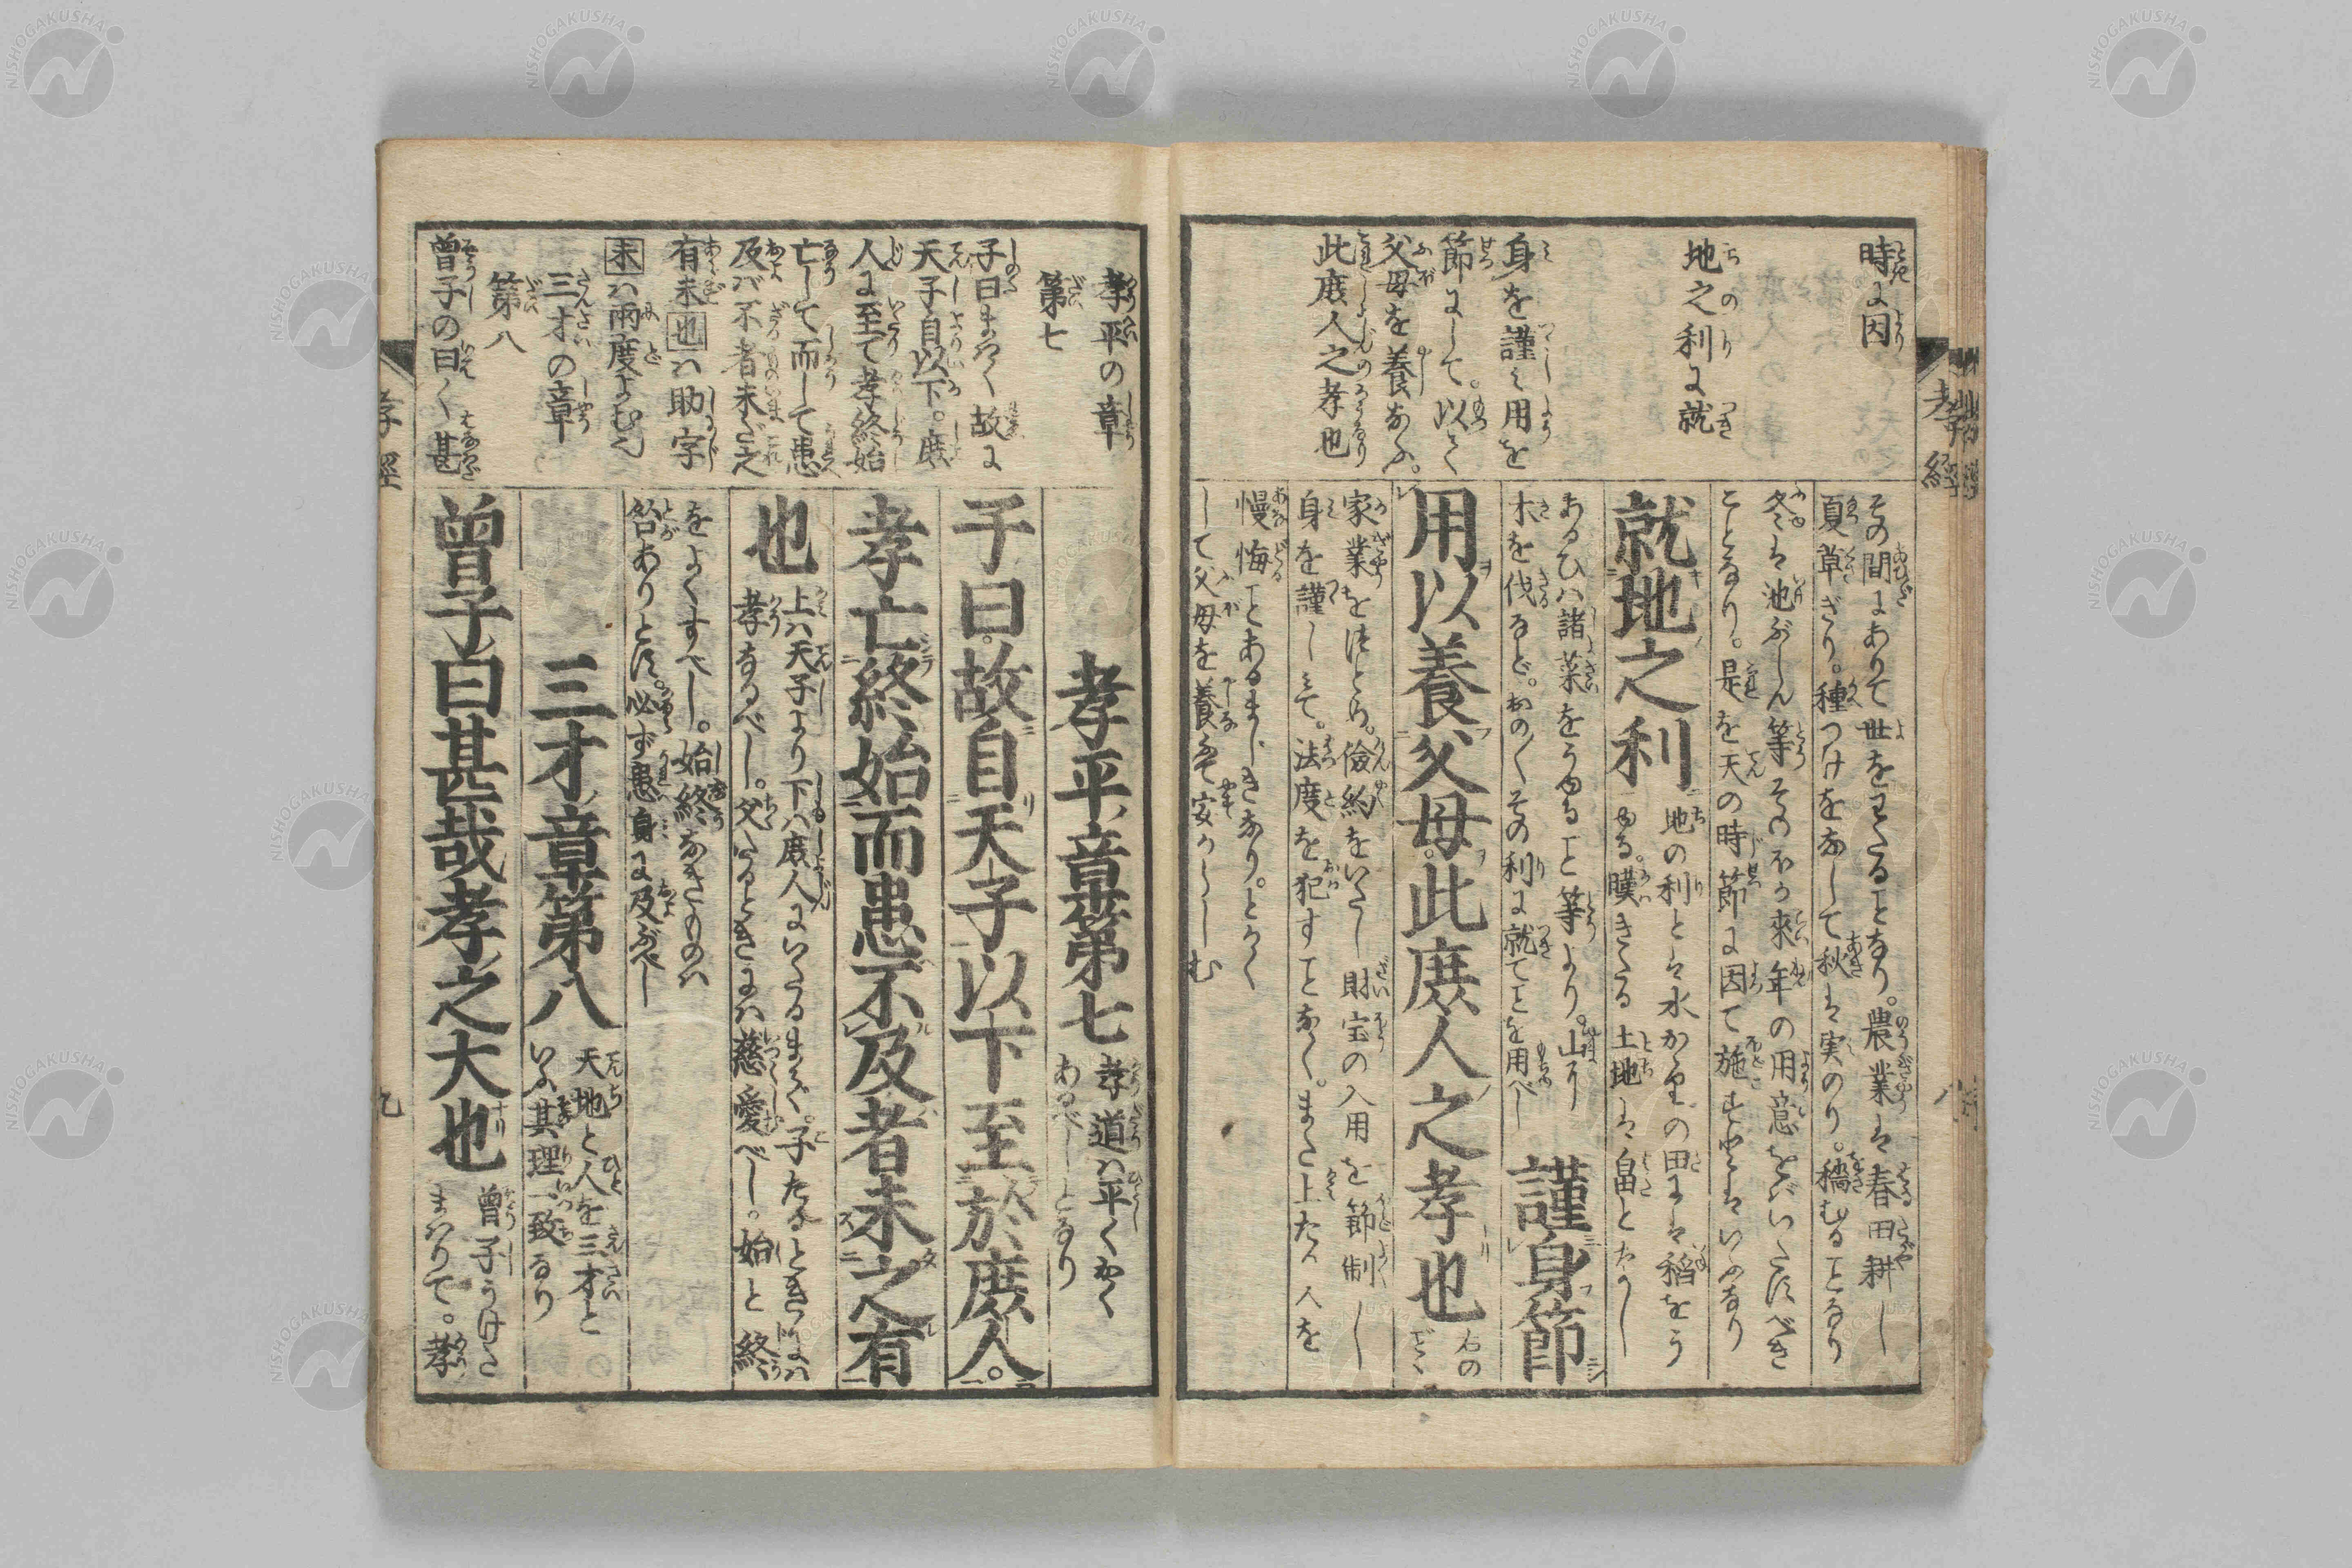 時に因
地之利に就
身を謹み用を
節にして。以て
父母を養なふ。
此庶人之孝也
その間にありて世をわたることなり。農業は春田耕し
夏草ぎり。種つけをなして秋は実のり。穡むることなり
冬は池ぶしん等そのほか來年の用意をいたすべき
ことなり。是を天の時節に因て施すとはいふなり
就地之利
地の利とは水かゝりの田には稻をう
ゆる。膜きたる土地は畠となし
あるひは諸菜をうゆること等より。山に
木を伐るなど。おの〱その利に就てことを用べし
謹身節
用以養父母。此庶人之孝也
右の
ごとく
家業をつとめ。儉約をいたし財宝の入用を節制し
身を謹しみて。法度を犯すことなく。また上たる人を
慢侮ことあるまじきなり。とかく
して父母を養ふて安からしむ
孝經
孝平の章
第七
子曰まはく故に
天子自以下。庶
人に至て孝終始
亡して而して患
及バ不者未だ之
有未也ハ助字
未ハ兩度よむ也
三才の章
第八
曾子の曰く甚
孝平章第七
孝道ハ平くおく
あるべしとなり
子曰。故自天子以下至於庶人。
孝亡終始而患不及者未之有
也
上ハ天子より下ハ庶人にいたるまで。子たるときにハ
孝なるべし。父たるときにハ慈愛べし。始と終
をよくすべし。始終なきものハ
咎ありとす。必ず患身に及ぶべし
三才章第八
天地と人を三才と
いふ其理一致なり
曾子曰甚哉孝之大也
曾子うけた
まはりて。孝
孝經
九